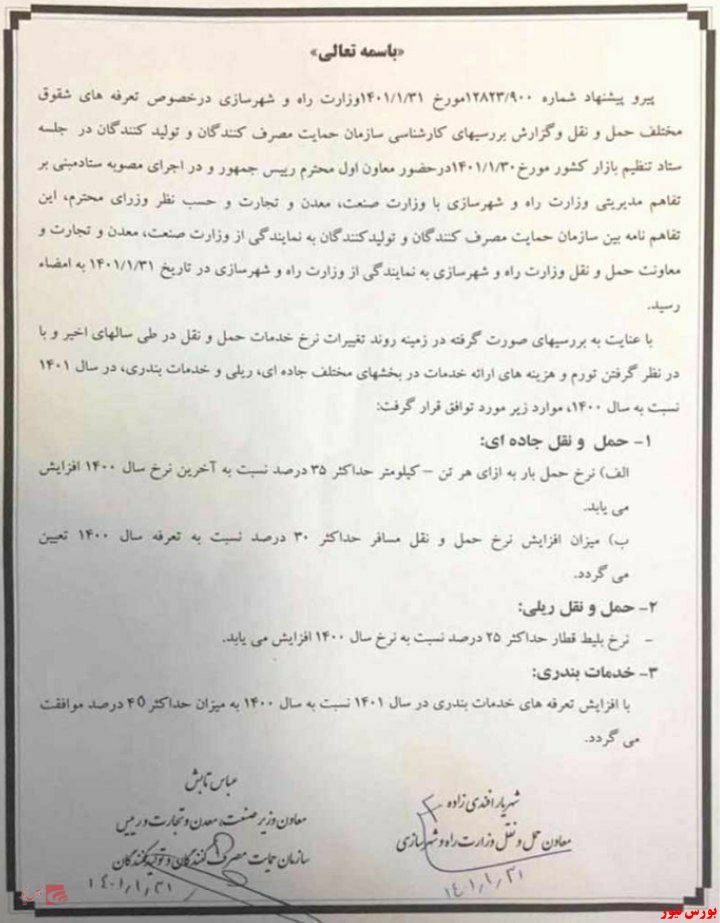 «باسمه تعالی»
پیرو پیشنهاد شماره ۱۲۸۲۳/۹۰۰مورخ ۱۴۰۱/۱/۳۱وزارت راه و شهرسازی درخصوص تعرفه های شقوق
مختلف حمل و نقل وگزارش بررسیهای کارشناسی سازمان حمایت مصرف کنندگان و تولید کنندگان در جلسه
ستاد تنظیم بازار کشور مورخ۱۴۰۱/۱/۳۰درحضور معاون اول محترم رییس جمهور و در اجرای مصوبه ستادمبنی بر
تفاهم مدیریتی وزارت راه و شهرسازی با وزارت صنعت، معدن و تجارت و حسب نظر وزرای محترم، این
تفاهم نامه بین سازمان حمایت مصرف کنندگان و تولیدکنندگان به نمایندگی از وزارت صنعت، معدن و تجارت و
معاونت حمل و نقل وزارت راه و شهرسازی به نمایندگی از وزارت راه و شهرسازی در تاریخ ۱۴۰۱/۱/۳۱ به امضاء
رسید.
با عنایت به بررسیهای صورت گرفته در زمینه روند تغییرات نرخ خدمات حمل و نقل در طی سالهای اخیر و با
در نظر گرفتن تورم و هزینه های ارائه خدمات در بخشهای مختلف جاده ای، ریلی و خدمات بندری، در سال ۱۴۰۱
نسبت به سال ۱۴۰۰، موارد زیر مورد توافق قرار گرفت:
۱- حمل و نقل جاده ای:
الف) نرخ حمل بار به ازای هر تن – کیلومتر حداکثر ۳۵ درصد نسبت به آخرین نرخ سال ۱۴۰۰ افزایش
می یابد.
ب) میزان افزایش نرخ حمل و نقل مسافر حداکثر ۳۰ درصد نسبت به تعرفه سال ۱۴۰۰ تعیین
می گردد.
۲- حمل و نقل ریلی:
- نرخ بلیط قطار حداکثر ۲۵ درصد نسبت به نرخ سال ۱۴۰۰ افزایش می یابد.
۳- خدمات بندری:
با افزایش تعرفه های خدمات بندری در سال ۱۴۰۱ نسبت به سال ۱۴۰۰ به میزان حداکثر ۴۵ درصد موافقت
می گردد.
شهریار افندی زاده
معاون حمل و نقل وزارت راه و شهرسازی
۱۴۰۱,۱,۳۱
عباس تابش
معاون وزیر صنعت، معدن و تجارت و رییس
سازمان حمایت مصرف کنندگان و تولیدکنندگان
۱۴۰۱,۱,۳۱
بورس نیوز